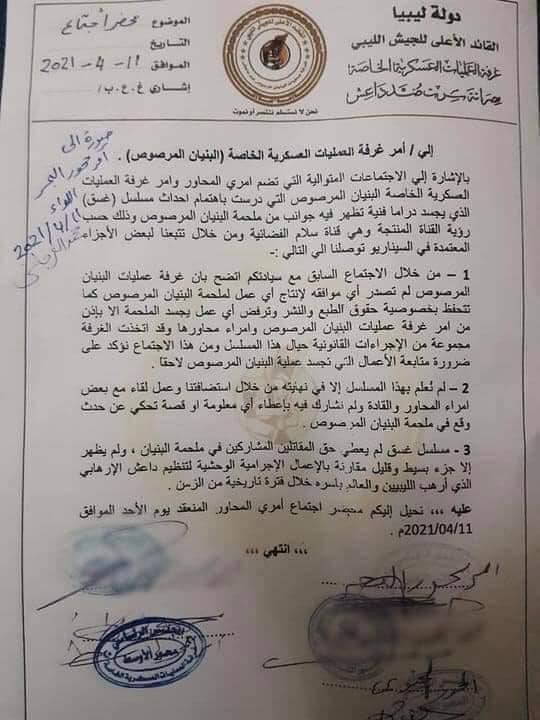 دولة ليبيا
القائد الأعلى للجيش الليبي
غرفة العمليات العسكرية الخاصة
سرت ضد داعش
نحن لا نستسلم ننتصر أو نموت
الموضوع / محضر أجتماع
التاريخ
الموافق 11-4-2021
إشاري / غ.ح.ب /
صورة الى
2021/4/11
إلي / أمر غرفة العمليات العسكرية الخاصة (البنيان المرصوص) .
بالإشارة إلي الاجتماعات المتوالية التي تضم امري المحاور وامر غرفة العمليات
العسكرية الخاصة البنيان المرصوص التي درست باهتمام احداث مسلسل (غسق)
الذي يجسد دراما فنية تظهر فيه جوانب من ملحمة البنيان المرصوص وذلك حسب
رؤية القناة المنتجة وهي قناة سلام الفضائية ومن خلال تتبعنا لبعض الأجزاء
المعتمدة في السيناريو توصلنا الي التالي :-
1 – من خلال الاجتماع السابق مع سيادتكم اتضح بان غرفة عمليات البنيان
المرصوص لم تصدر أي موافقه لإنتاج أي عمل لملحمة البنيان المرصوص كما
تتحفظ بخصوصية حقوق الطبع والنشر وترفض أي عمل يجسد الملحمة الا بإذن
من امر غرفة عمليات البنيان المرصوص وامراء محاورها وقد اتخذت الغرفة
مجموعة من الإجراءات القانونية حيال هذا المسلسل ومن هذا الاجتماع نؤكد على
ضرورة متابعة الأعمال التي تجسد عملية البنيان المرصوص لاحقا .
2 – لم نُعلم بهذا المسلسل إلا في نهايته من خلال استضافتنا وعمل لقاء مع بعض
امراء المحاور والقادة ولم نشارك فيه بإعطاء أي معلومة او قصة تحكي عن حدث
وقع في ملحمة البنيان المرصوص .
3 - مسلسل غسق لم يعطي حق المقاتلين المشاركين في ملحمة البنيان ، ولم يظهر
إلا جزء بسيط وقليل مقارنة بالإعمال الإجرامية الوحشية لتنظيم داعش الإرهابي
الذي أرهب الليبيين والعالم بأسره خلال فترة تاريخية من الزمن .
عليه ،،، نحيل إليكم محضر اجتماع أمري المحاور المنعقد يوم الأحد الموافق
2021/04/11م .
،،، انتهي ،،،
المجلس الرئاسي
محور الأوسط
غرفة العمليات العسكرية الخاصة